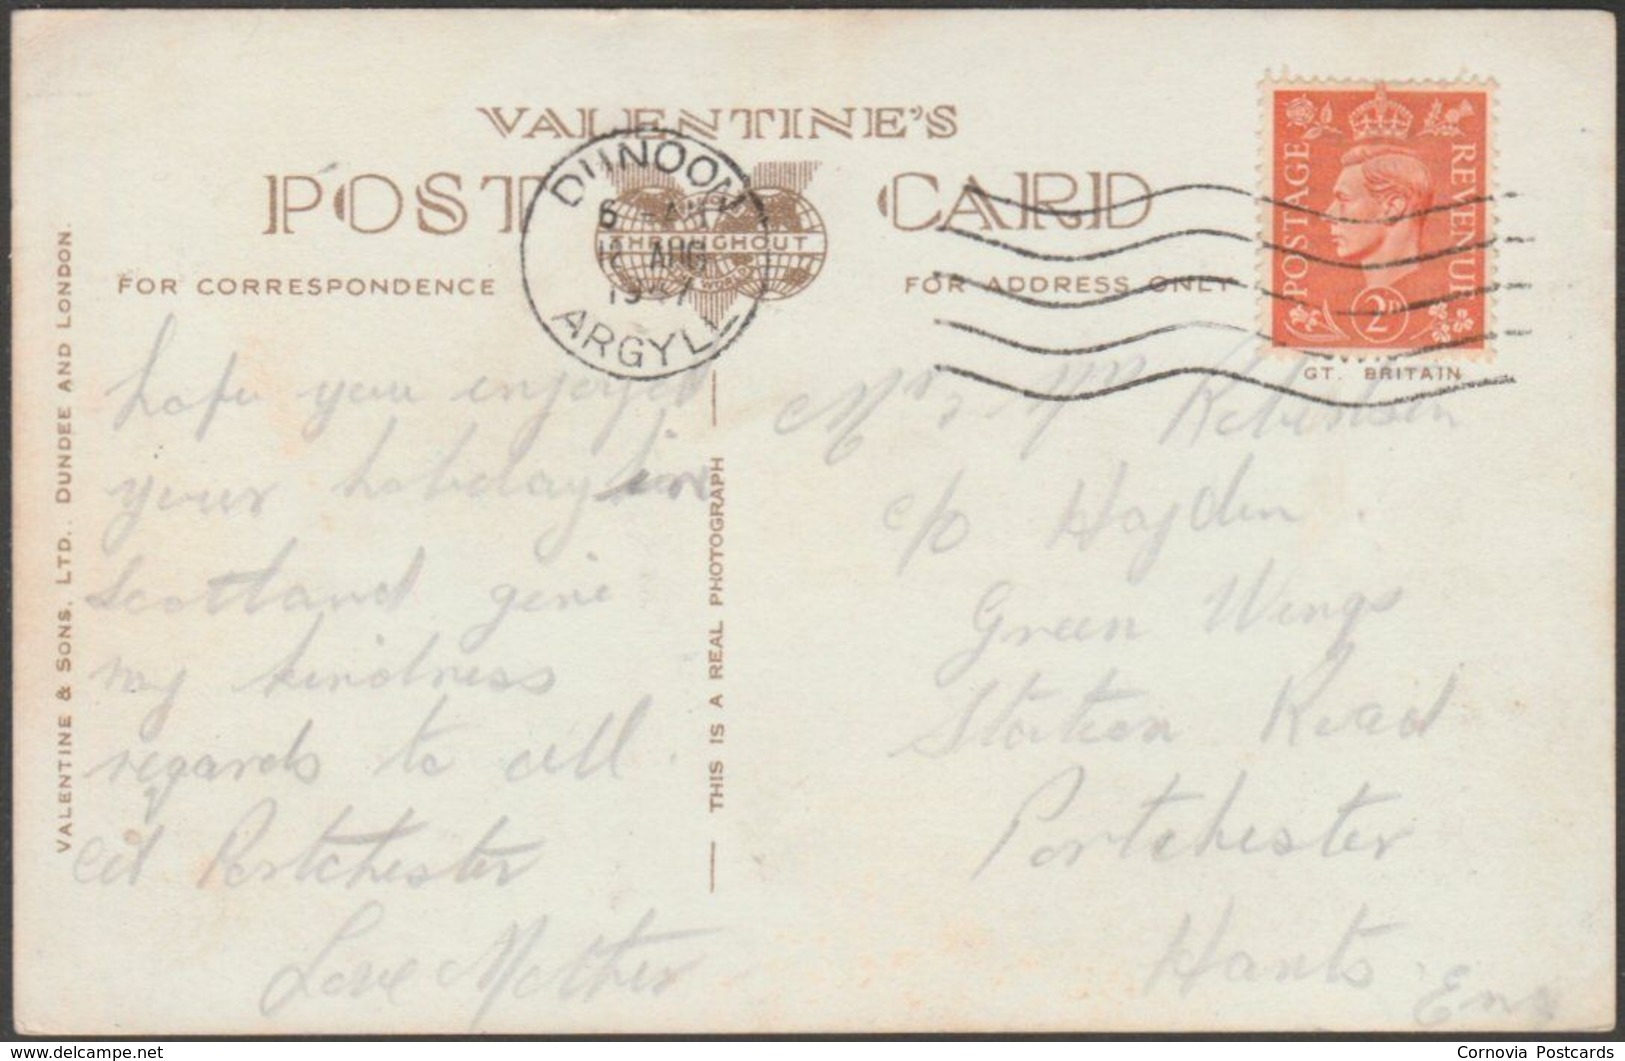 VALENTINE'S
POST CARD
THROUGHOUT
WORLD
FOR CORRESPONDENCE
FOR ADDRESS ONLY
DUNOON
6 - AM
12 AUG
1947
ARGYLL
POSTAGE
REVENUE
2D
GT. BRITAIN
VALENTINE & SONS, LTD., DUNDEE AND LONDON.
THIS IS A REAL PHOTOGRAPH
hope you enjoyed
your holiday in
Scotland give
my kindness
regards to all
at Portchester
Love Mother
Mr & Mrs Robertson
c/o Haydin
Green Wings
Station Road
Portchester
Hants
Eng
delcampe.net
Cornovia Postcards